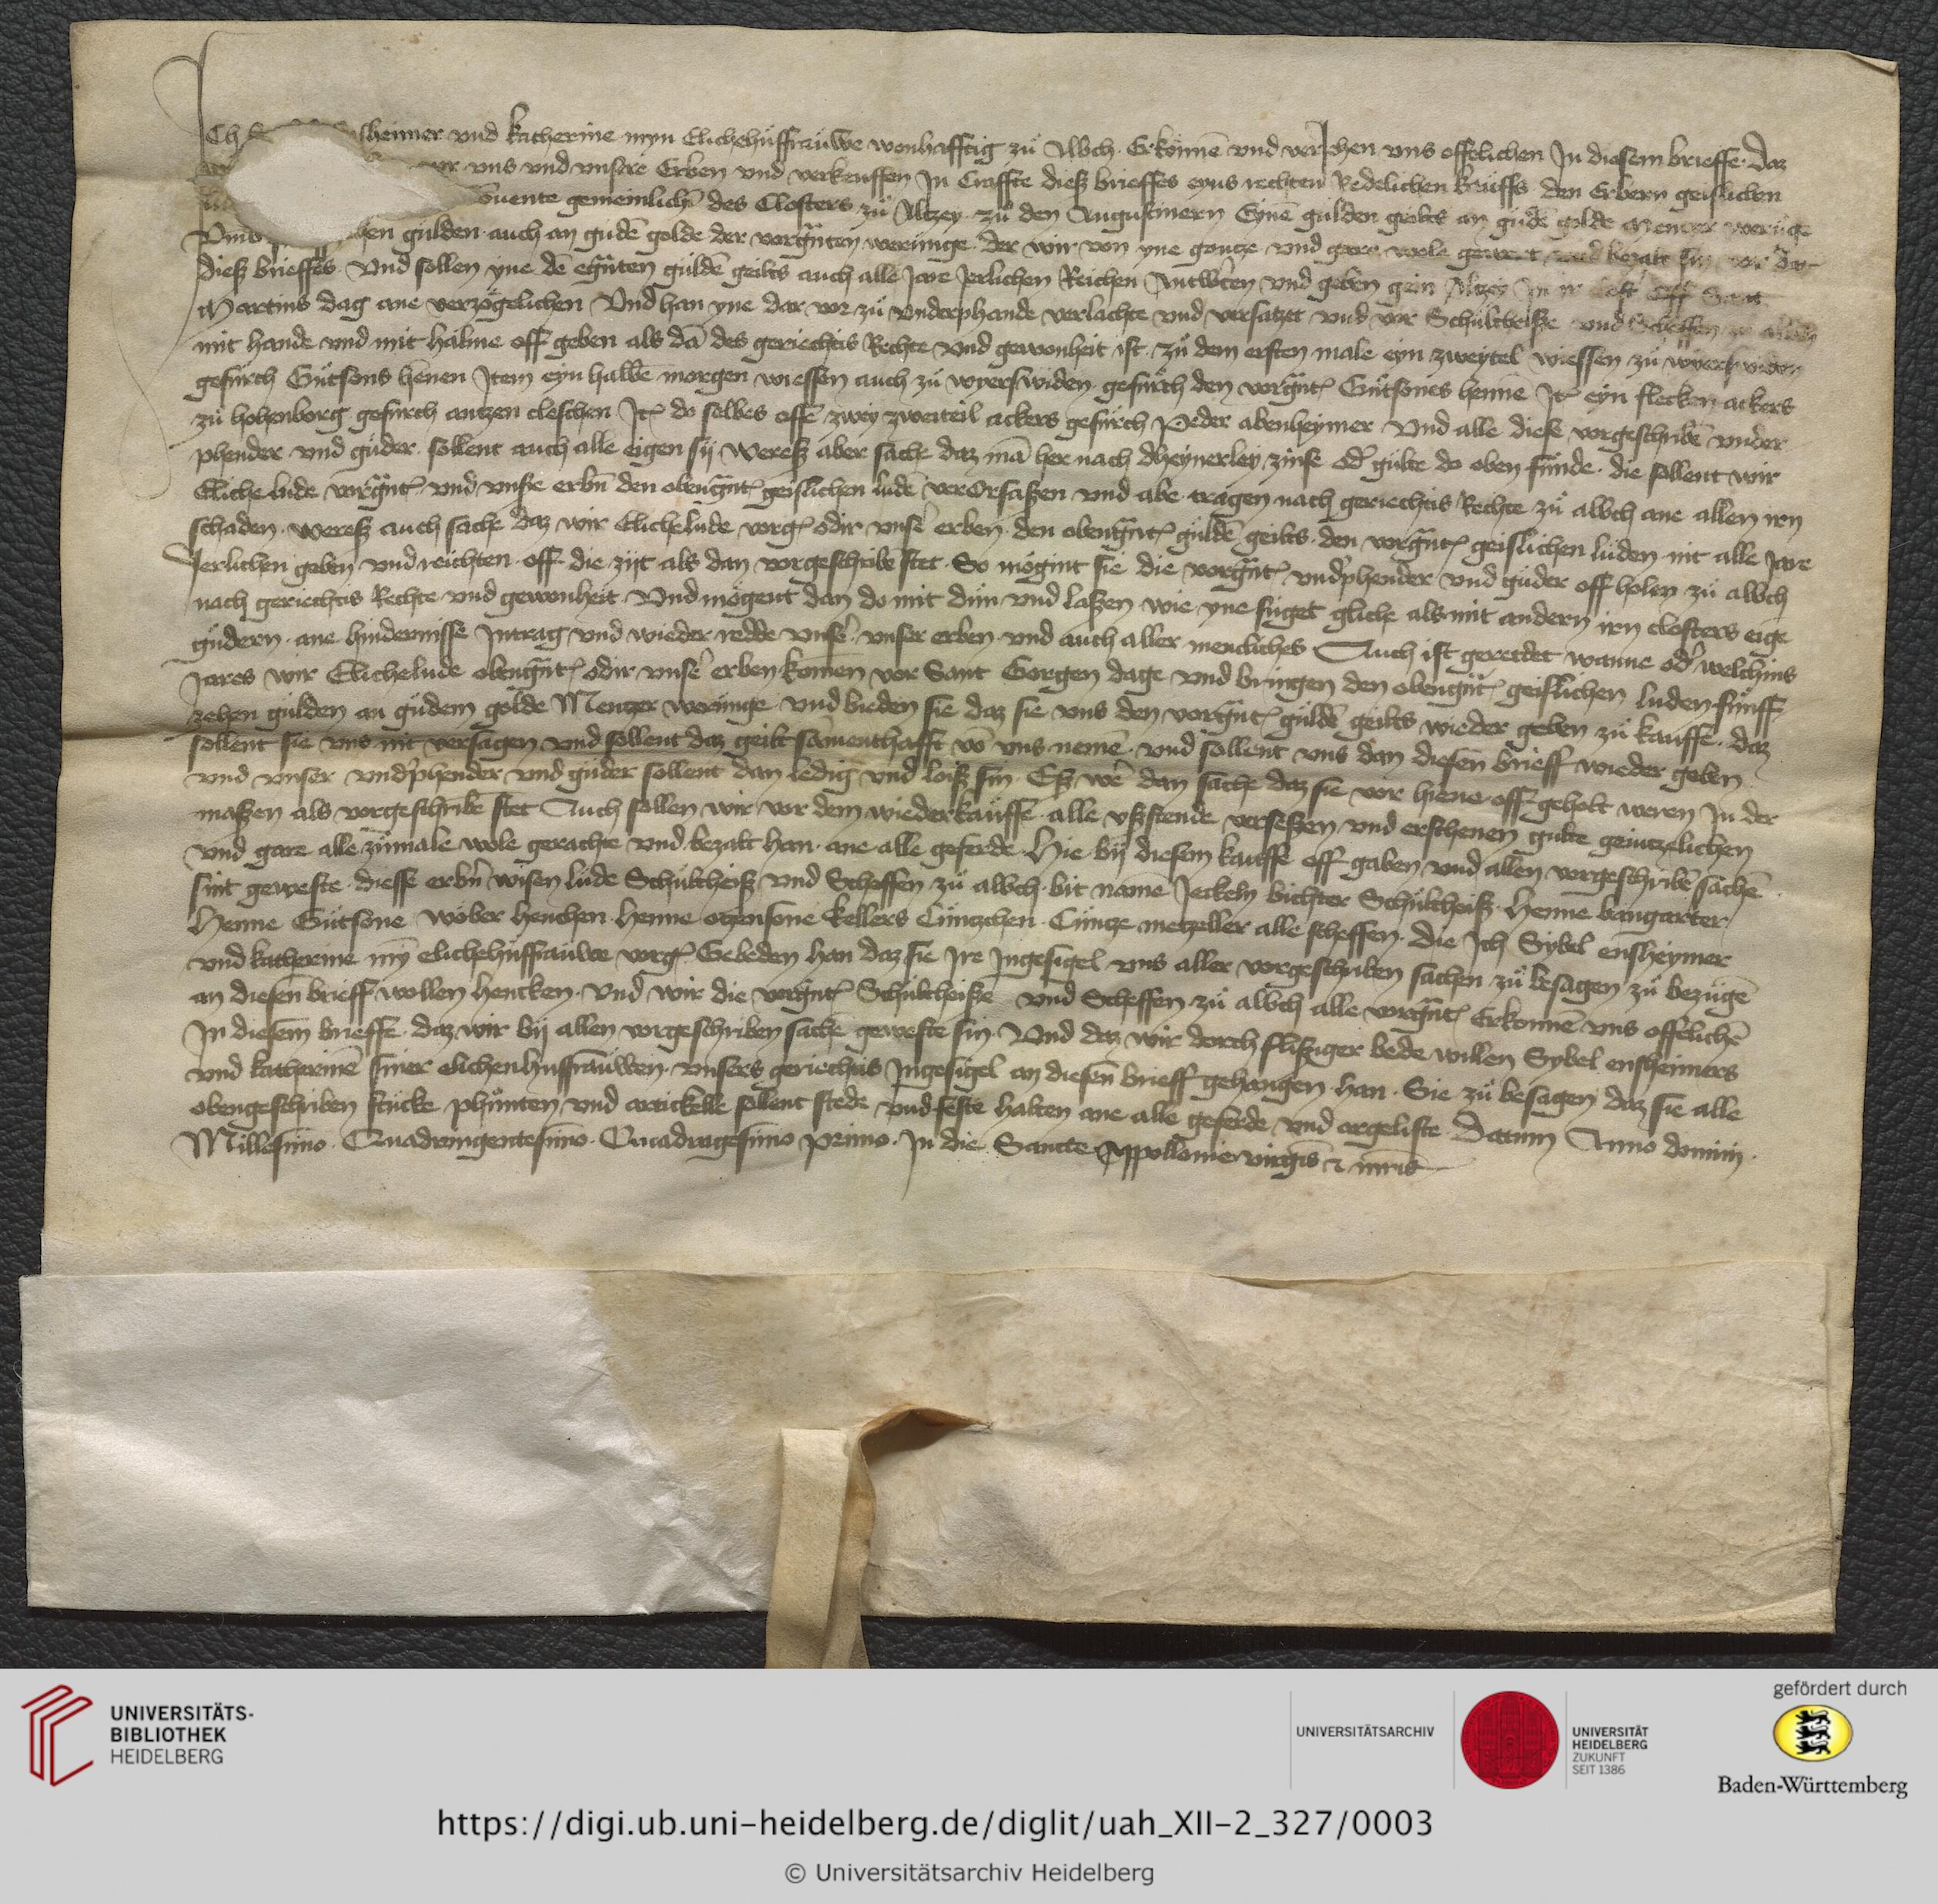 Ch lheimer vnd katherine myn Elichehusfrauwe wonhafftig zu Albch Erkonnē vnd veriehen vns offelichen In diesem brieffe daz
vor vns vnd vnsere Erben vnd verkeuffen In Craffte dieß brieffes eyns rechten Redelichen kauffs den Erbern geislichen
Conuente gemeinlichē des Closters zu Altzey zu den Augustinern Eynē gulden geilts an gudē golde Mentzer werūge
hen gulden auch an gudē golde der vorgnten werunge der wir von yne gontze vnd gare wole gewert vnd bezalt sin vor dat
dieß brieffes Vnd sollen yne dē egnten guldē geilts auch alle Jare Jerlichen Reichen Antwertē vnd geben gein Altzey In ir off Sant
Martins dag ane verzogelichen Vnd han yne dar vor zu vnderphande verlachte vnd versatzet vnd vor Schultheiße vnd Scheffen zu albch
mit hande vnd mit halme off geben als dā des geriechtis Rechte vnd gewonheit ist zu dem ersten male eyn zweytel wiessen zu wyerswiden
gefurch Gutsons hennen Item eyn halbe morgen wiessen auch zu wyerswiden gefurch den vorgnt Gutsones henne It eyn flecken ackers
zu hohenborg gefurch antzen cleschen It do selbes offe zwey zweiteil ackers gefurch Peder abenheymer Vnd alle diese vorgeschribē vnder
phender vnd guder sollent auch alle eigen sij Wereß aber sache daz mā her nach dheynerley zinse od gulte do oben funde die sollent wir
Eliche lude vorgnt vnd vnsre erbn den obengnt geislichen lude verorsaßen vnd abe tragen nach geriechtis Rechte zu albch ane allen irn
schaden wereß auch sache daz wir Elichelude vorg odir vnse erben den obengnt guldē geilts den vorgnt geislichen luden nit alle Jare
Jerlichen geben vnd reichten off die zijt als dan vorgeschribē stet So mogint sie die vorgnt vndphender vnd guder off holen zu albch
nach geriechtis Rechte vnd gewonheit Vnd mogent dan do mit dun vnd laßen wie yne fuget gliche als mit andern irn closters eige
gudern ane hindernisse Intrag vnd wieder redde vnse vnser erben vnd auch aller mencliches Auch ist gerettet wanne od welchins
Jares wir Elichelude obengnt odir vnse erben komen vor Sant Gorgen dage vnd bringen den obengnt geislichen luden funff
zehen gulden an gudem golde Mentzer werunge vnd bieden sie daz sie vns den vorgnt guldē geilts wieder geben zu kauffe daz
sollent sie vns nit versagen vnd sollent daz geilt samenthafft vō vns nemē vnd sollent vns dan diesen brieff wieder geben
vnd vnser vndphender vnd guder sollent dan ledig vnd loiß sin Eß wē dan sache daz sie vor hiene off geholt weren In der
maßen als vorgeschribē stet Auch sollen wir vor dem wiederkauffe alle vßstende verseßen vnd erschenen gulte geintzelichen
vnd gare alle zumale wole gerachte vnd bezalt han ane alle geferde Hie bij diesem kauffe off gaben vnd allen vorgeschribē sachē
sint geweste diesse erbn wisen lude Schultheiß vnd Scheffen zu albch bit namē Jeckeln bichter Schultheiß Henne bangarter
Henne Gutsone wober henchen henne otzensone kellers Cuntzchen Cuntze metzeller alle scheffen Die Ich Sybel ensheymer
vnd katherine mȳ elichehusfrauwe vorg Gebeden han daz sie Ire Ingesigel vns aller vorgeschriben sachen zu besagen zu bezugē
an diesen brieff wollen hencken Vnd wir die vorgnt Schultheiße vnd Scheffen zu albch alle vorgnt Erkonnē vns offelichē
In diesem brieffe daz wir bij allen vorgeschriben sachē geweste sin Vnd daz wir dorch flißiger bede willen Sybel ensheimers
vnd katherinē siner elichenhusfrauwen vnsers geriechtis Ingesigel an diesen brieff gehangen han Sie zu besagen daz sie alle
obengeschriben stucke phunten vnd artickelle sollent stede vnd feste halten ane alle geferde vnd argeliste Datum Anno domini
Millesimo Quadringentesimo Quadragesimo primo In die Sancte Appollonie virgis & mris
UNIVERSITÄTS-
BIBLIOTHEK
HEIDELBERG
UNIVERSITÄTSARCHIV
UNIVERSITÄT
HEIDELBERG
ZUKUNFT
SEIT 1386
gefördert durch
Baden-Württemberg
https://digi.ub.uni-heidelberg.de/diglit/uah_XII-2_327/0003
© Universitätsarchiv Heidelberg